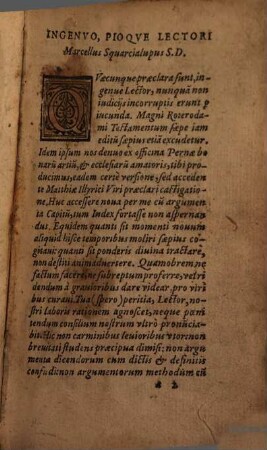 INGENVO, PIOQVE LECTORI
Marcellus Squarcialupus S.D.
QVæcunque præclara sunt, in-
genue Lector, nunquã non
iudicijs incorruptis erunt
iucunda. Magni Roterodami
Testamentum sæpe iam
editũ sæpius etiã excudetur.
Idem ipsum nos denuo ex officina Pernæ bo-
narũ artiũ, & ecclesiarũ amatoris, tibi pro-
ducimus, eadem certè versione, sed acceden-
te Matthiæ Illyrici Viri præclari castigatione.
Huc accessere noua per me cũ argumenta
Capitũ, tum Index fortasse non aspernan-
dus. Equidem quanti sit momenti nouum
aliquid hisce temporibus moliri sæpius co-
gitaui: quanti sit ponderis diuina tractare,
non destiti animaduertere. Quamobrem ne
factum sacrè, ne subreptum proferre, vel ri-
dendum à grauioribus dare videar, pro viri-
bus curaui. Tua (spero) peritia, Lector, no-
stri laboris rationem agnoscet, neque pœni-
tendum consilium nostrum vltrò pronũcia-
bit: etsi non carminibus leuioribus vtor: non
breuitati studens præcipua dimisi: non argu-
menta dicendorum cum dictis & definitis
confudi: non argumentorum methodũm cũ